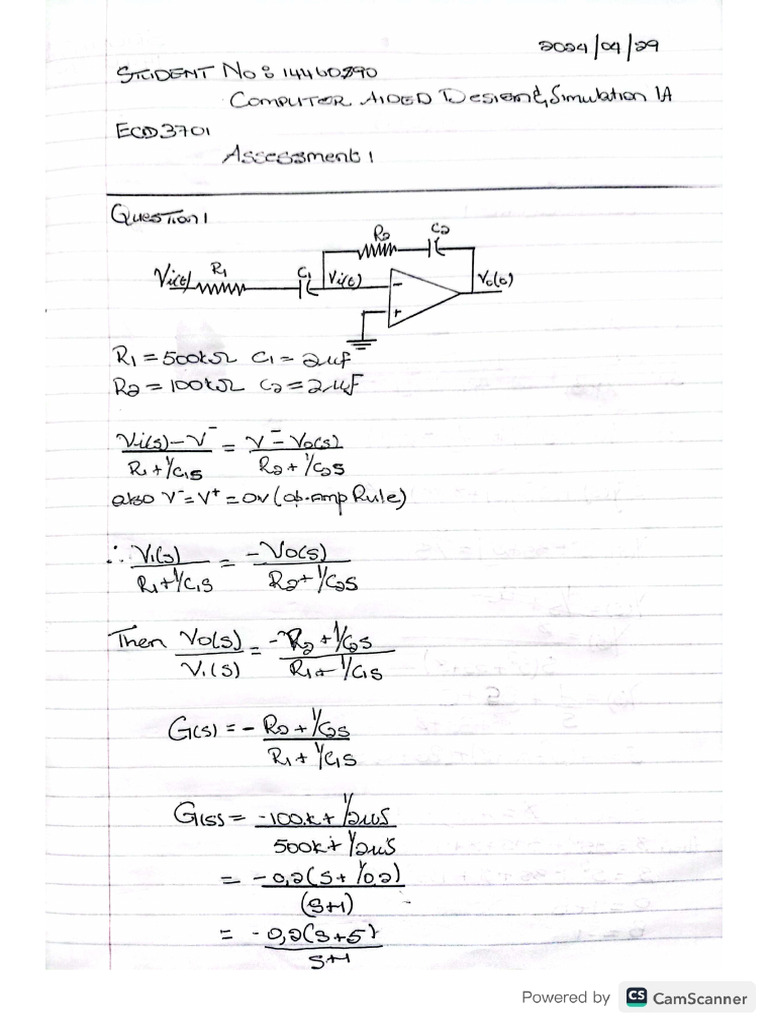 2024/04/29
STUDENT No: 14460290
COMPUTER AIDED Design & Simulation 1A
ECD3701
Assessment 1
Question 1
R2 C2
Vi(t) R1 C1 Vi(t) - Vo(t)
+
R1 = 500kΩ C1 = 2uf
R2 = 100kΩ C2 = 2uF
Vi(s) - V⁻ / R1 + 1/C1s = V⁻ - Vo(s) / R2 + 1/C2s
also V⁻ = V⁺ = 0V (op-amp Rule)
∴ Vi(s) / R1 + 1/C1s = -Vo(s) / R2 + 1/C2s
Then Vo(s) / Vi(s) = -R2 + 1/C2s / R1 + 1/C1s
G(s) = - R2 + 1/C2s / R1 + 1/C1s
G(s) = -100k + 1/2us / 500k + 1/2us
= -0,2(s + 1/0,2) / (s+1)
= -0,2(s+5) / s+1
Powered by CS CamScanner